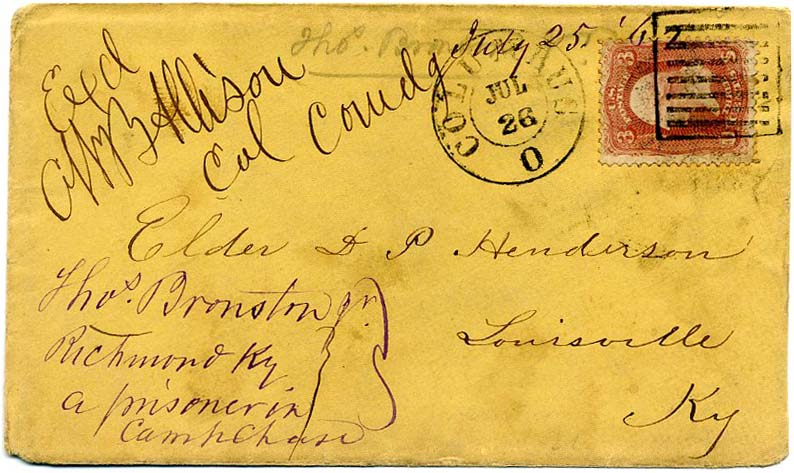 Thos. Bronston July 25 '62
Exd
C W B Allison
Col Comdg
COLUMBUS
JUL
26
O
3 3
U.S.
3 3
Elder D P Henderson
Louisville
Ky
Thos. Bronston jr.
Richmond Ky
a prisoner in
Camp Chase